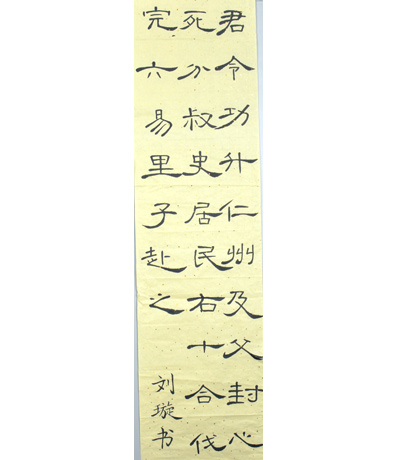 君令功升仁州及父封心
死分叔史居民右十合伐
完六易里子赴之
刘璇书